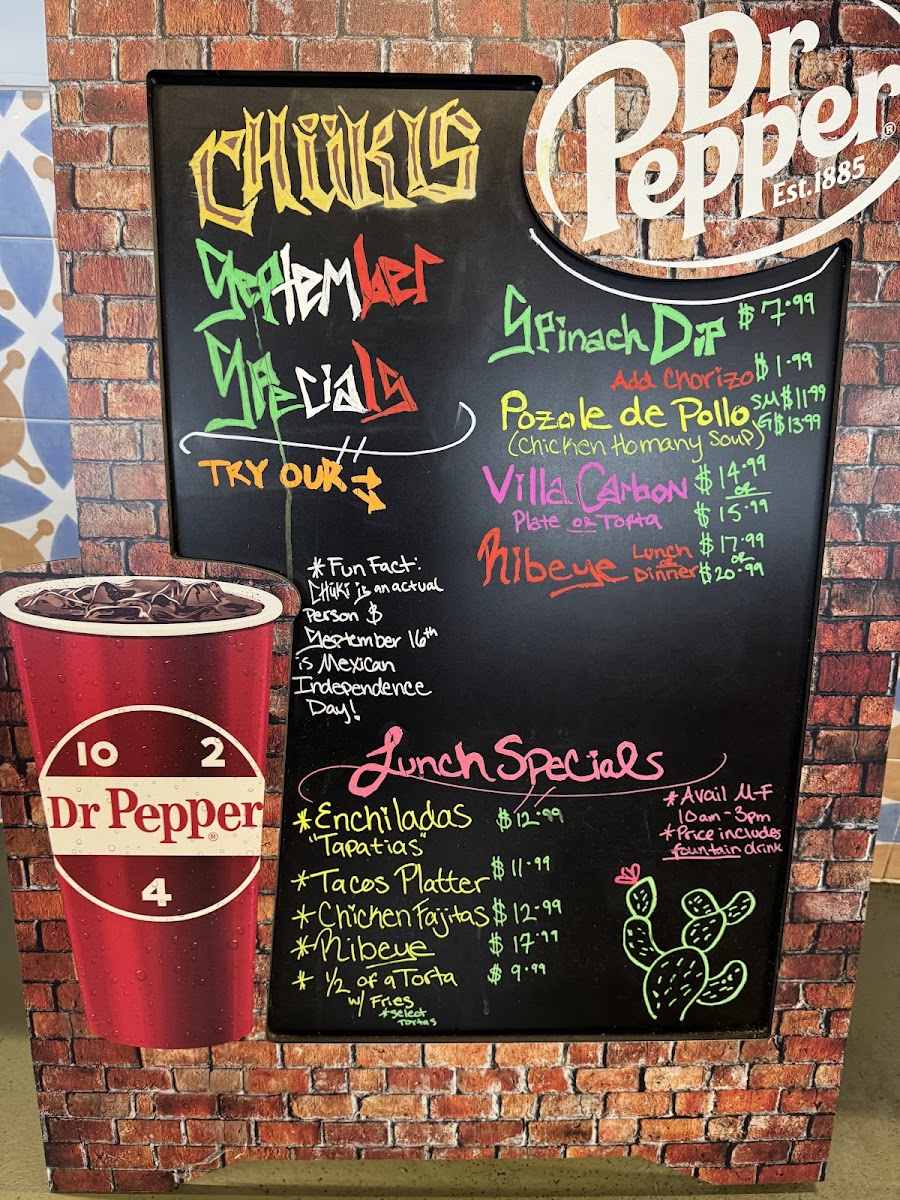 Dr
Pepper®
Est. 1885
CHüKIS
September
Specials
TRY OUR
Spinach Dip $7.99
Add Chorizo $1.99
Pozole de Pollo SM $11.99
G $13.99
(Chicken Homany Soup)
Villa Carbon $14.99
or
Plate or Torta $15.99
Ribeye Lunch $17.99
or or
Dinner $20.99
*Fun Fact:
CHüKi is an actual
person $
September 16th
is Mexican
Independence
Day!
Lunch Specials
*Avail M-F
10am-3pm
*Price includes
fountain drink
*Enchiladas $12.99
"Tapatias"
*Tacos Platter $11.99
*Chicken Fajitas $12.99
*Ribeye $17.99
* 1/2 of a Torta $9.99
w/ Fries
*select
Tortas
10 2
Dr Pepper®
4